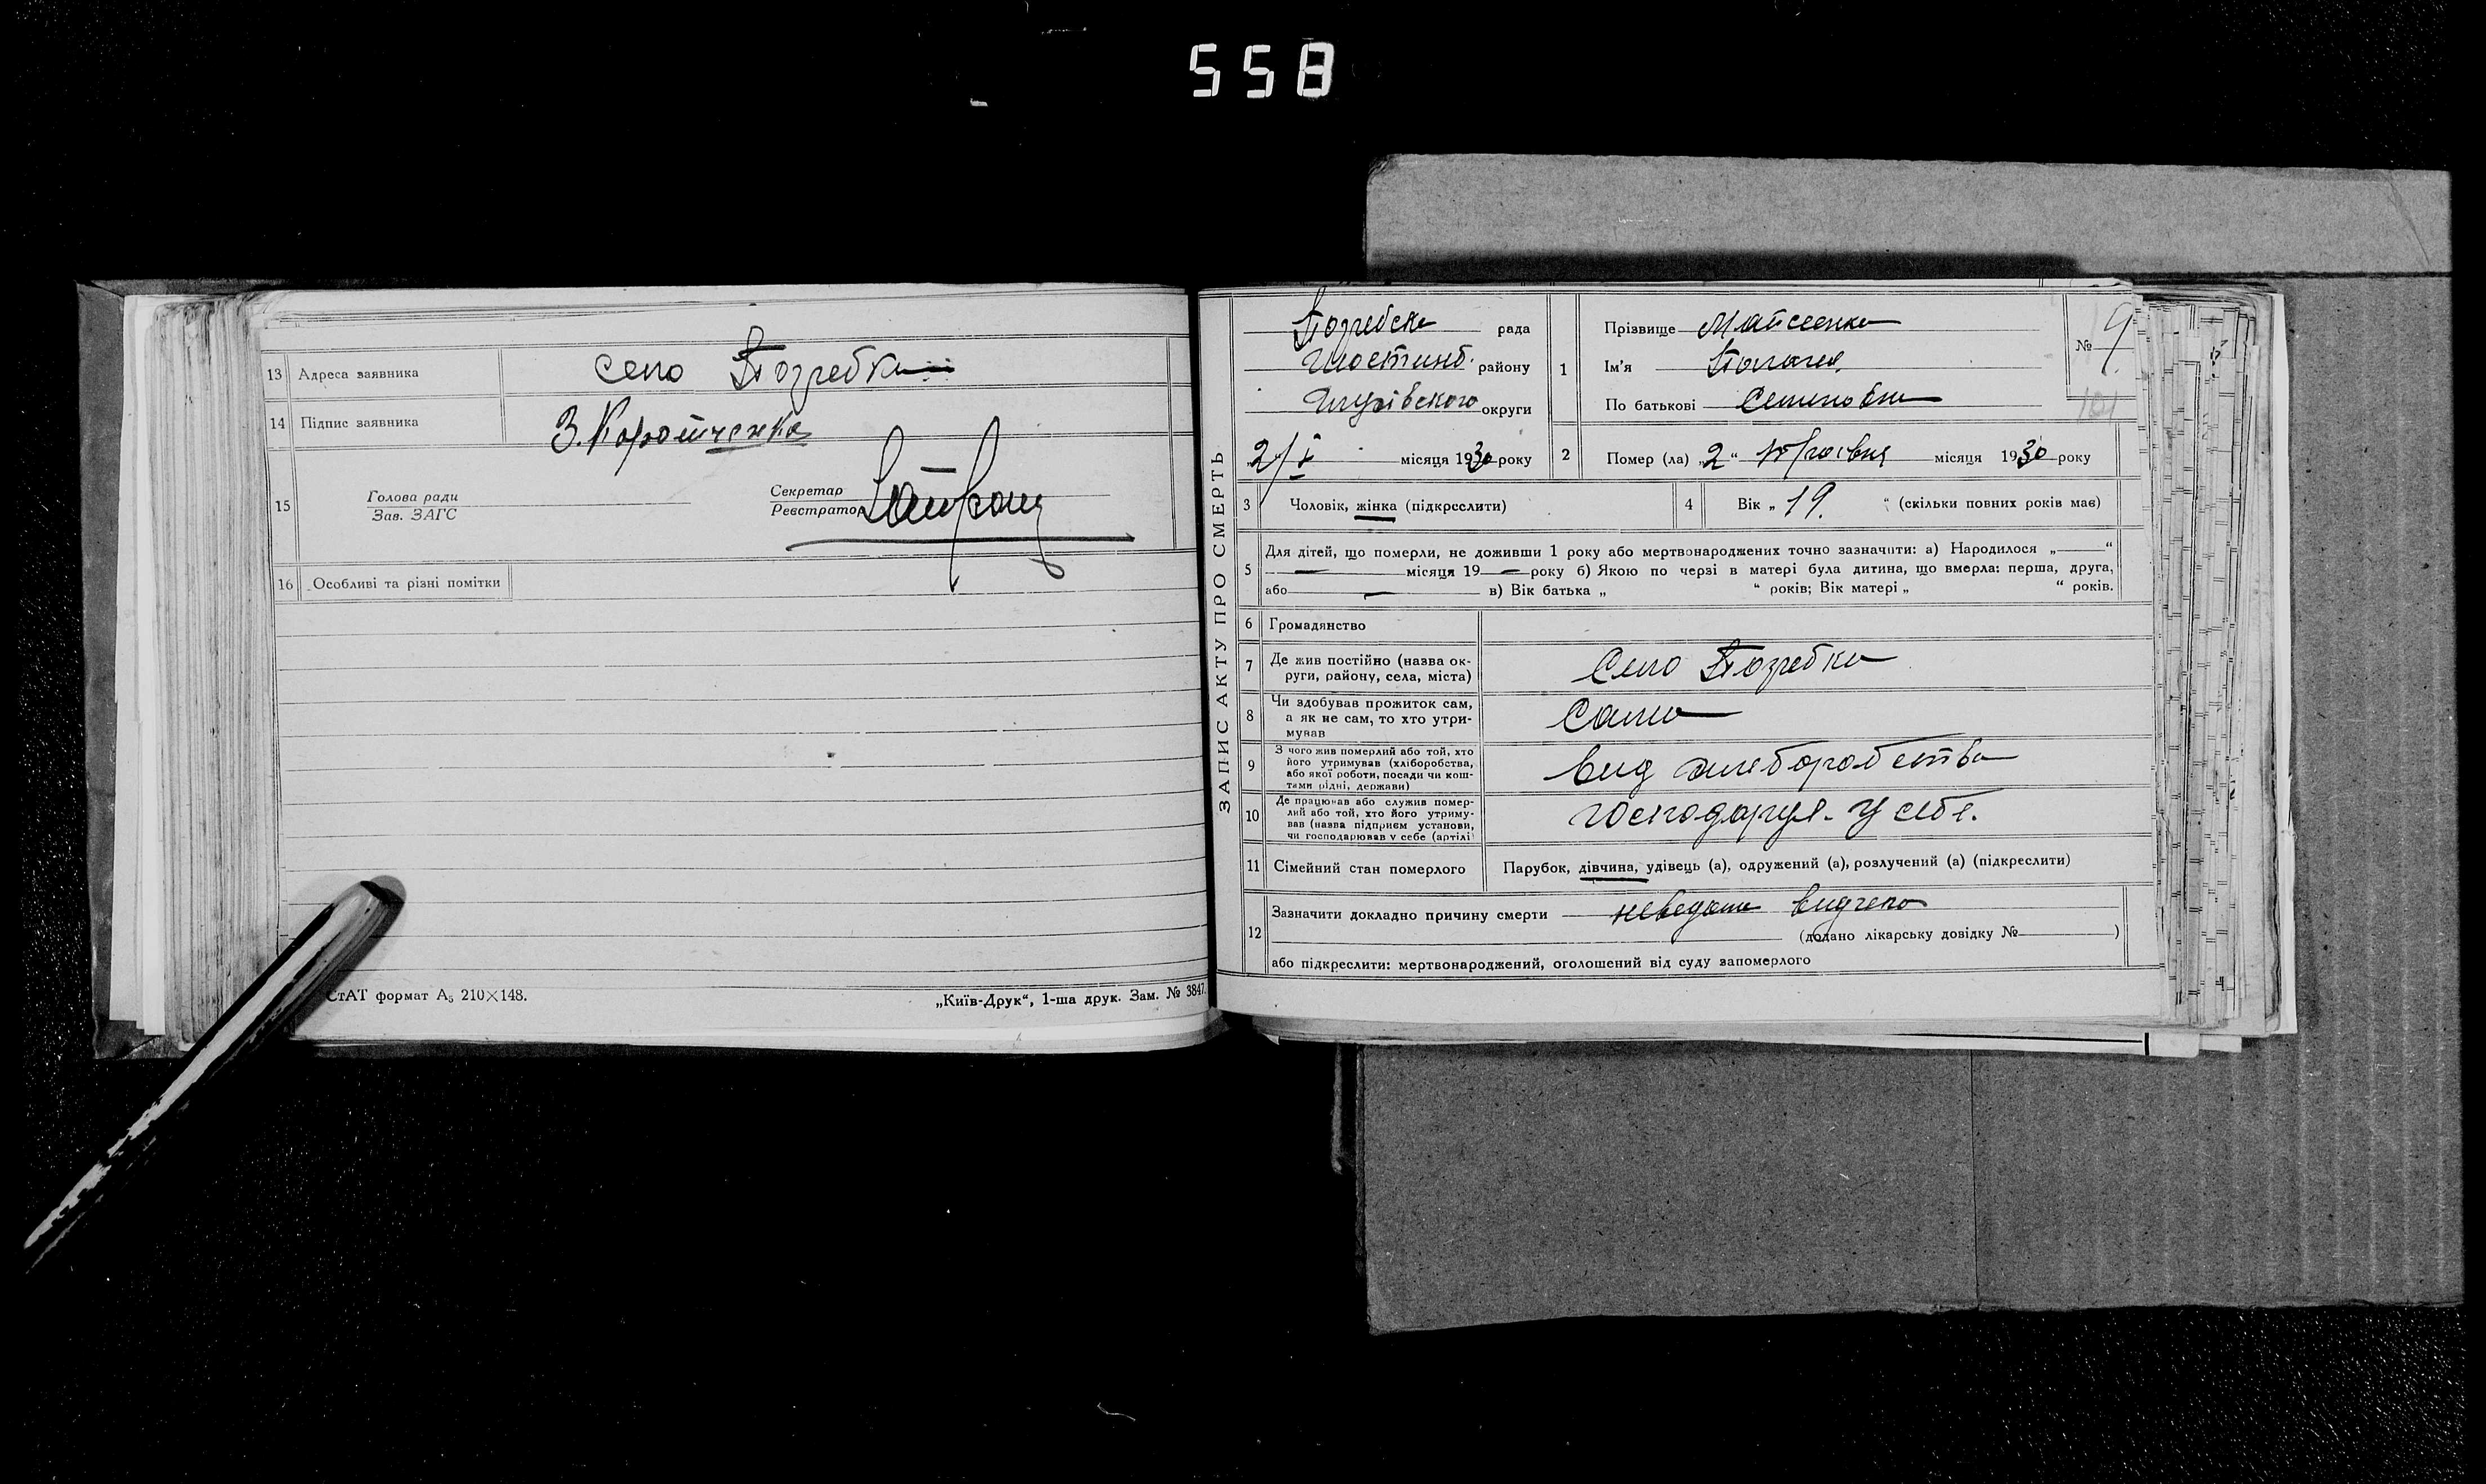 558
13 Адреса заявника село Погребки
14 Підпис заявника З. Коротченко
15 Голова ради
Зав. ЗАГС
Секретар
Реєстратор
16 Особливі та різні помітки
СтАТ формат А₅ 210×148.
„Київ-Друк“, 1-ша друк. Зам. № 3847.
ЗАПИС АКТУ ПРО СМЕРТЬ
Погребска рада
Шостинс. району
Глухівского округи
2/V місяця 1930 року
1 Прізвище
Ім'я Полагея
По батькові Семеновна
№ 9
101
2 Помер (ла) „2“ місяця 1930 року
3 Чоловік, жінка (підкреслити)
4 Вік „19.“ (скільки повних років має)
5 Для дітей, що померли, не доживши 1 року або мертвонароджених точно зазначити: а) Народилося „—“
— місяця 19 — року б) Якою по черзі в матері була дитина, що вмерла: перша, друга,
або — в) Вік батька „ “ років; Вік матері „ “ років.
6 Громадянство
7 Де жив постійно (назва ок-
руги, району, села, міста)
Село Погребки
8 Чи здобував прожиток сам,
а як не сам, то хто утри-
мував
Сама
9 З чого жив померлий або той, хто
його утримував (хліборобства,
або якої роботи, посади чи кош-
тами рідні, держави)
вид хлеборобства
10 Де працював або служив помер-
лий або той, хто його утриму-
вав (назва підприєм установи,
чи господарював у себе (артілі)
господаруя. у себе.
11 Сімейний стан померлого
Парубок, дівчина, удівець (а), одружений (а), розлучений (а) (підкреслити)
12 Зазначити докладно причину смерти неведомо видчего
(додано лікарську довідку № )
або підкреслити: мертвонароджений, оголошений від суду запомерлого